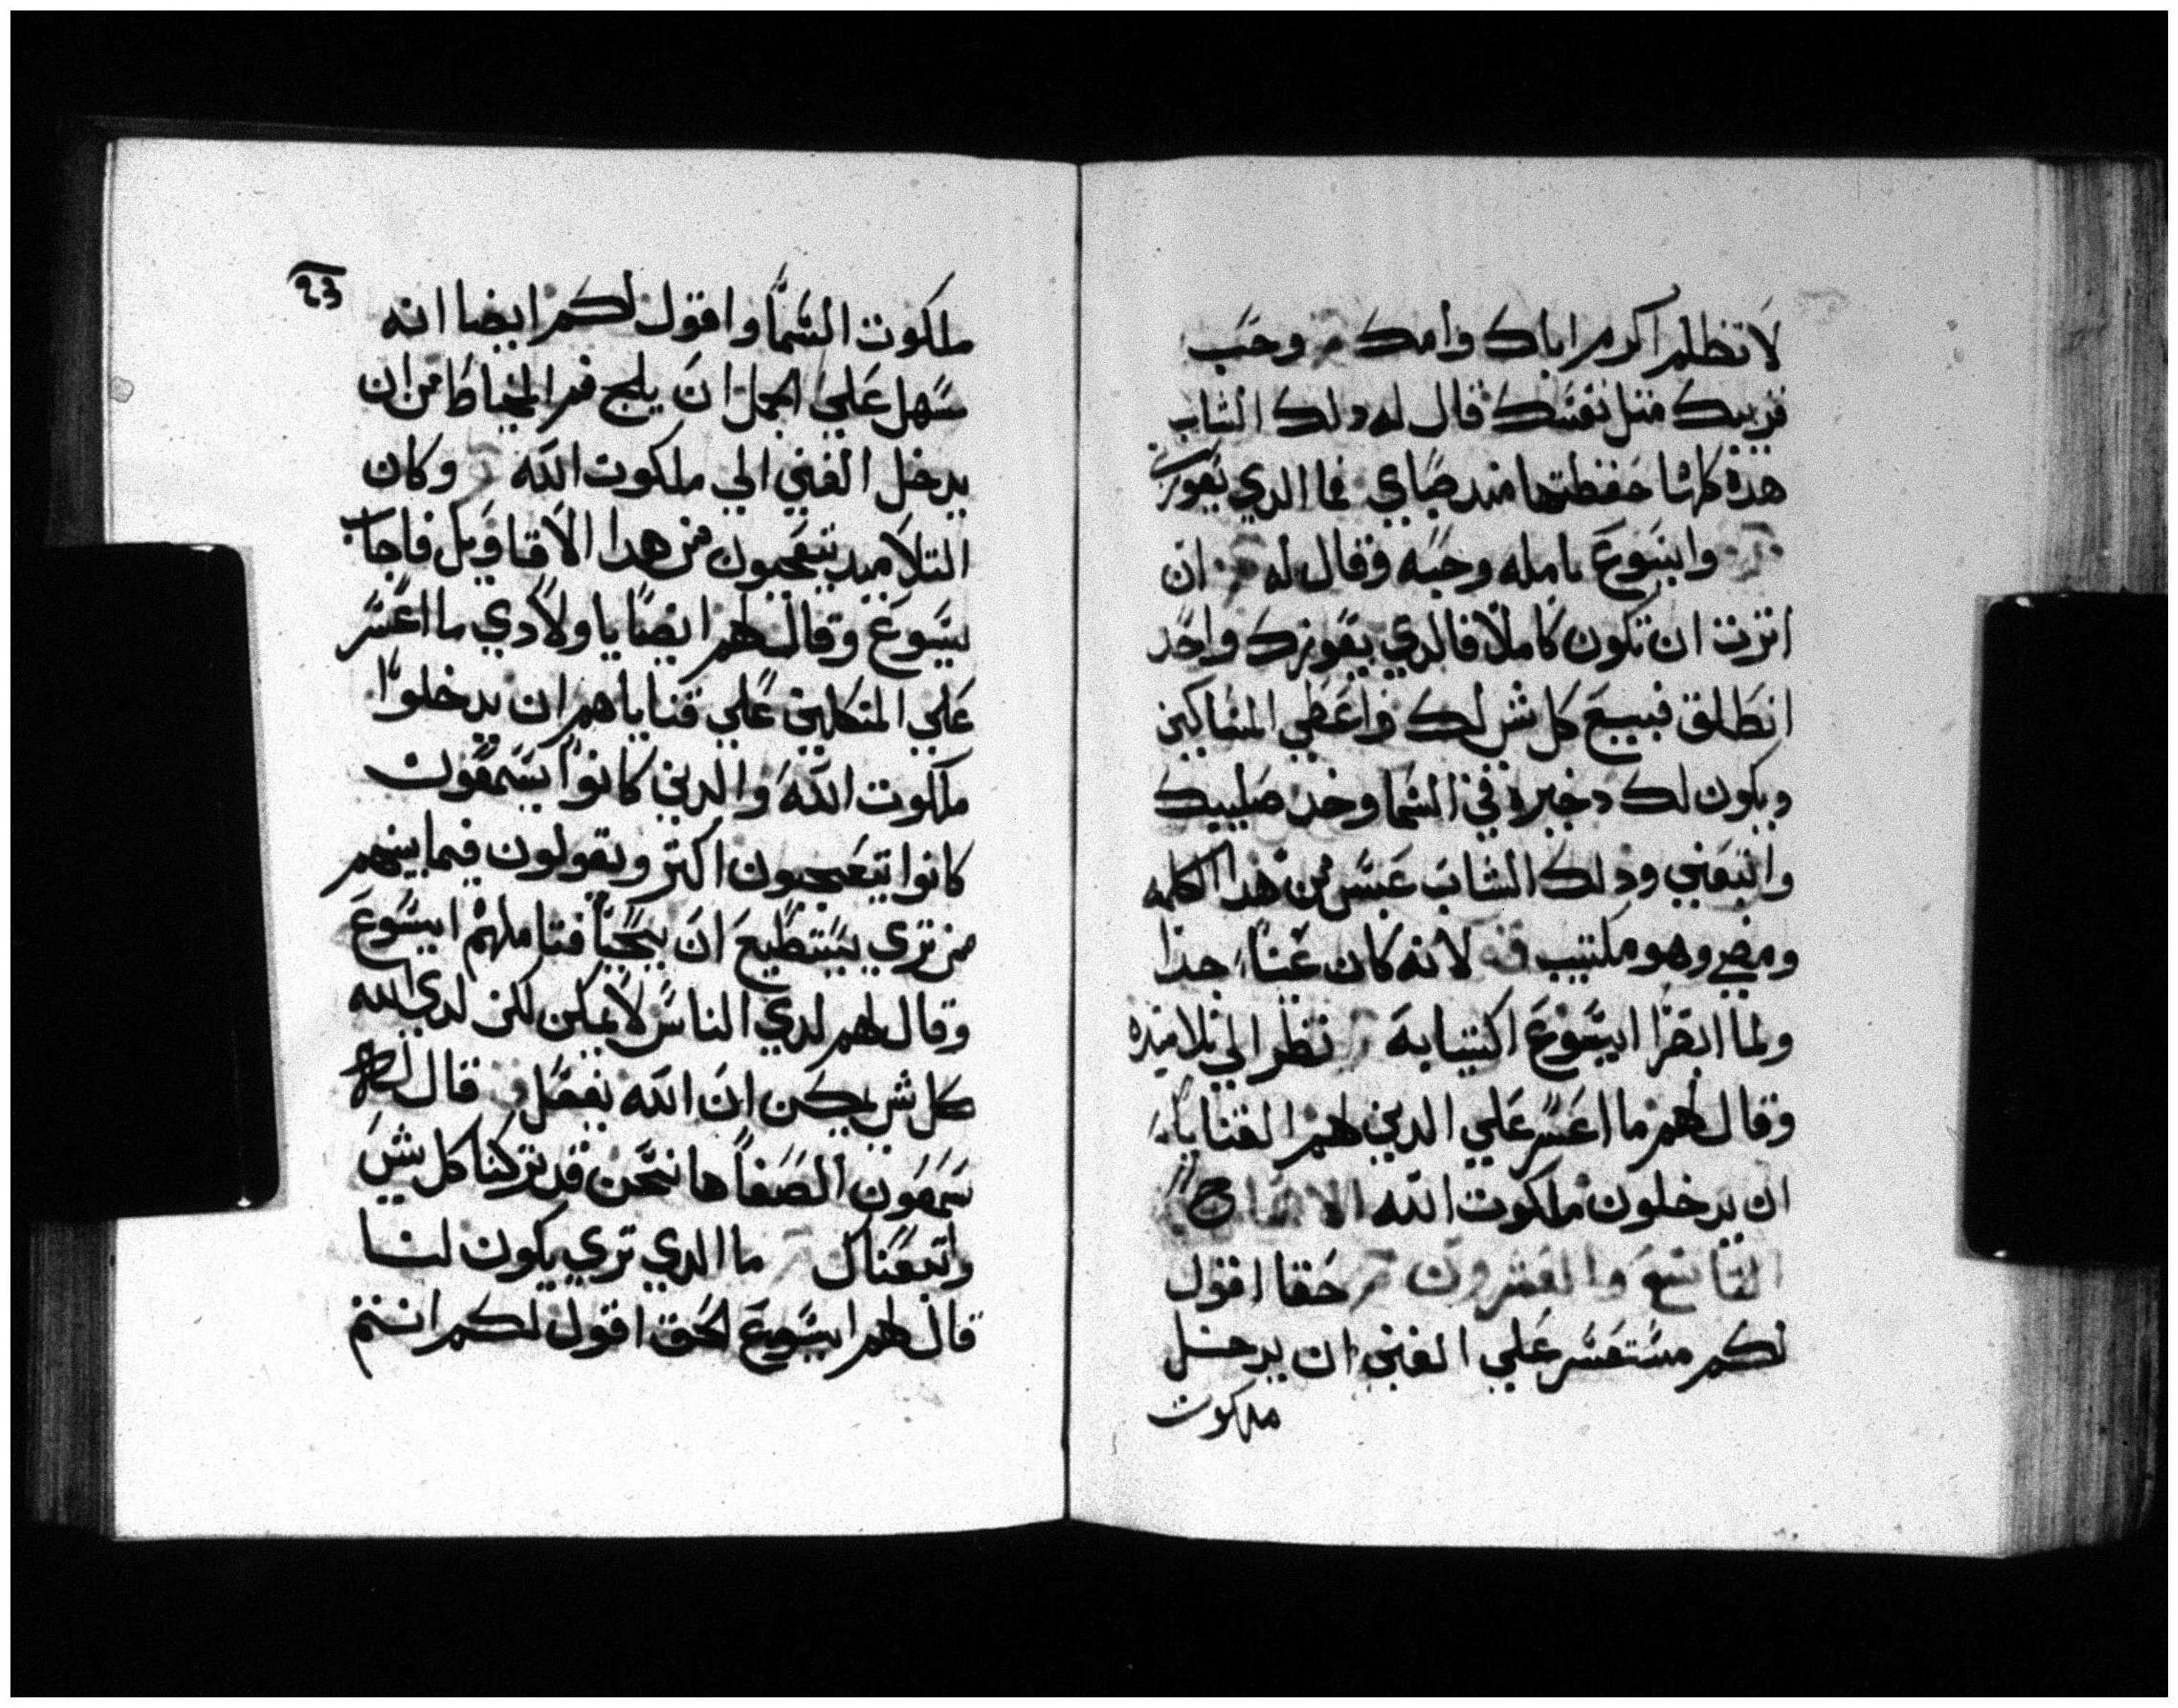 لا تظلم اكرم اباك وامك م وحب
قريبك متل نفسك قال له دلك الشاب
هده كلها حفظتها مند صباي فما الدي يعوزني
وايسوع تامله وحبه وقال له ان
انرت ان تكون كاملا فالدي يعوزك واحد
انطلق فبيع كل شي لك واعطي المساكين
ويكون لك دخيره في السما وخد صليبك
واتبعني ودلك الشاب عبس من هدا الكلمه
ومضي وهو مكتيب لانه كان غنيا جدا
ولما ابصر ايسوع اكتيابه نظر الي تلاميده
وقال لهم ما اعسر علي الدين لهم القنايا
ان يدخلون ملكوت الله الاصحاح
التاسع والعشرون حقا اقول
لكم مستعسر علي الغني ان يدخل
ملكوت
23
ملكوت السما واقول لكم ايضا انه
سهل علي الجمل ان يلج فم الخياط من ان
يدخل الغني الي ملكوت الله وكان
التلاميد يتعجبون من هدا الاقاويل فاجاب
يسوع وقال لهم ايضا يا ولادي ما اعسر
علي المتكلين علي قناياهم ان يدخلوا
ملكوت الله والدين كانوا يسمعون
كانوا يتعجبون اكتر ويقولون فيما بينهم
من تري يستطيع ان يحيا فتاملهم ايسوع
وقال لهم لدي الناس لا يمكن لكن لدي الله
كل شي يمكن ان الله يفعل قال لهم
سمعون الصفا ها نحن قد تركنا كل شي
واتبعناك ما الدي تري يكون لنا
قال لهم ايسوع الحق اقول لكم انتم